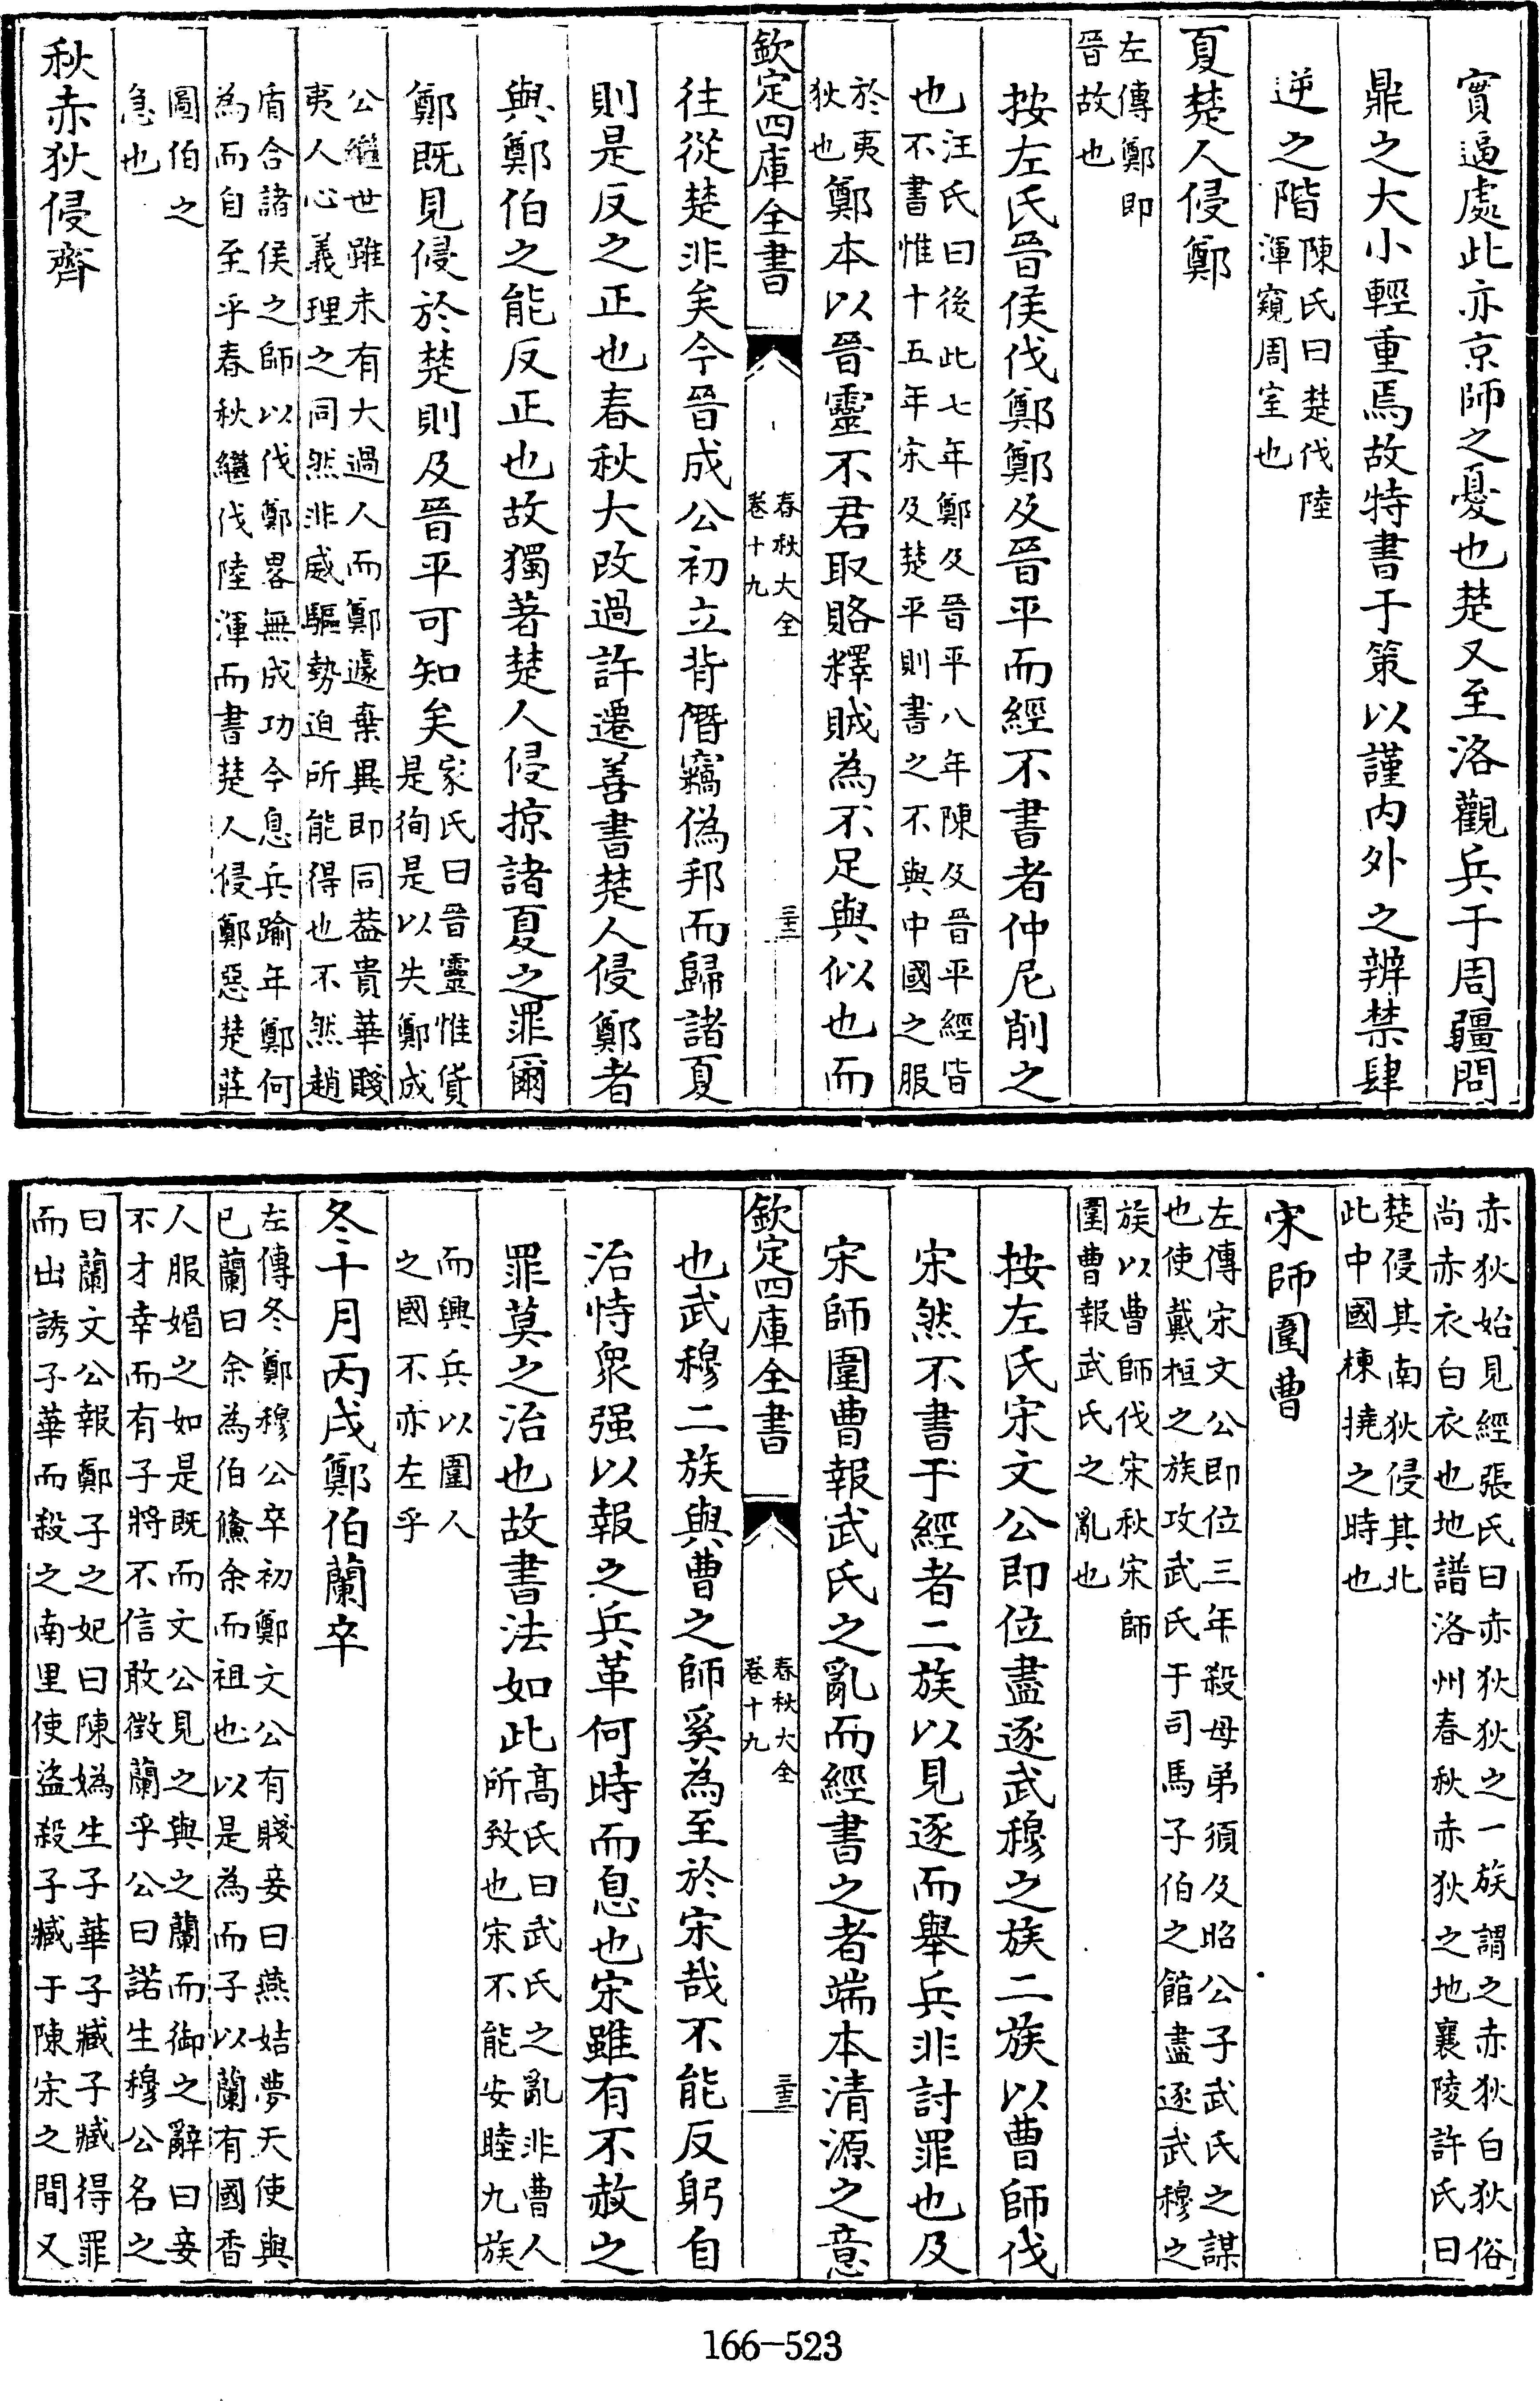 實逼處此亦京師之憂也楚又至洛觀兵于周疆問
鼎之大小輕重焉故特書于策以謹内外之辨禁肆
逆之階陳氏曰楚伐陸
渾窺周室也
夏楚人侵鄭
左傳鄭即
晉故也
按左氏晉侯伐鄭鄭及晉平而經不書者仲尼削之
也汪氏曰後此七年鄭及晉平八年陳及晉平經皆
不書惟十五年宋及楚平則書之不與中國之服
於夷
狄也鄭本以晉靈不君取賂釋賊為不足與似也而
欽定四庫全書
春秋大全
卷十九
三十三
往從楚非矣今晉成公初立背僭竊偽邦而歸諸夏
則是反之正也春秋大改過許遷善書楚人侵鄭者
與鄭伯之能反正也故獨著楚人侵掠諸夏之罪爾
鄭既見侵於楚則及晉平可知矣家氏曰晉靈惟貨
是徇是以失鄭成
公繼世雖未有大過人而鄭遽棄異即同葢貴華賤
夷人心義理之同然非威驅勢迫所能得也不然趙
盾合諸侯之師以伐鄭畧無成功今息兵踰年鄭何
為而自至乎春秋繼伐陸渾而書楚人侵鄭惡楚莊
圖伯之
急也
秋赤狄侵齊
赤狄始見經張氏曰赤狄狄之一族謂之赤狄白狄俗
尚赤衣白衣也地譜洛州春秋赤狄之地襄陵許氏曰
楚侵其南狄侵其北
此中國棟撓之時也
宋師圍曹
左傳宋文公即位三年殺母弟須及昭公子武氏之謀
也使戴桓之族攻武氏于司馬子伯之館盡逐武穆之
族以曹師伐宋秋宋師
圍曹報武氏之亂也
按左氏宋文公即位盡逐武穆之族二族以曹師伐
宋然不書于經者二族以見逐而舉兵非討罪也及
宋師圍曹報武氏之亂而經書之者端本清源之意
欽定四庫全書
春秋大全
卷十九
三十三
也武穆二族與曹之師奚為至於宋哉不能反躬自
治恃衆强以報之兵革何時而息也宋雖有不赦之
罪莫之治也故書法如此高氏曰武氏之亂非曹人
所致也宋不能安睦九族
而興兵以圍人
之國不亦左乎
冬十月丙戌鄭伯蘭卒
左傳冬鄭穆公卒初鄭文公有賤妾曰燕姞夢天使與
已蘭曰余為伯鯈余而祖也以是為而子以蘭有國香
人服媚之如是既而文公見之與之蘭而御之辭曰妾
不才幸而有子將不信敢徵蘭乎公曰諾生穆公名之
曰蘭文公報鄭子之妃曰陳嬀生子華子臧子臧得罪
而出誘子華而殺之南里使盜殺子臧于陳宋之間又
166-523